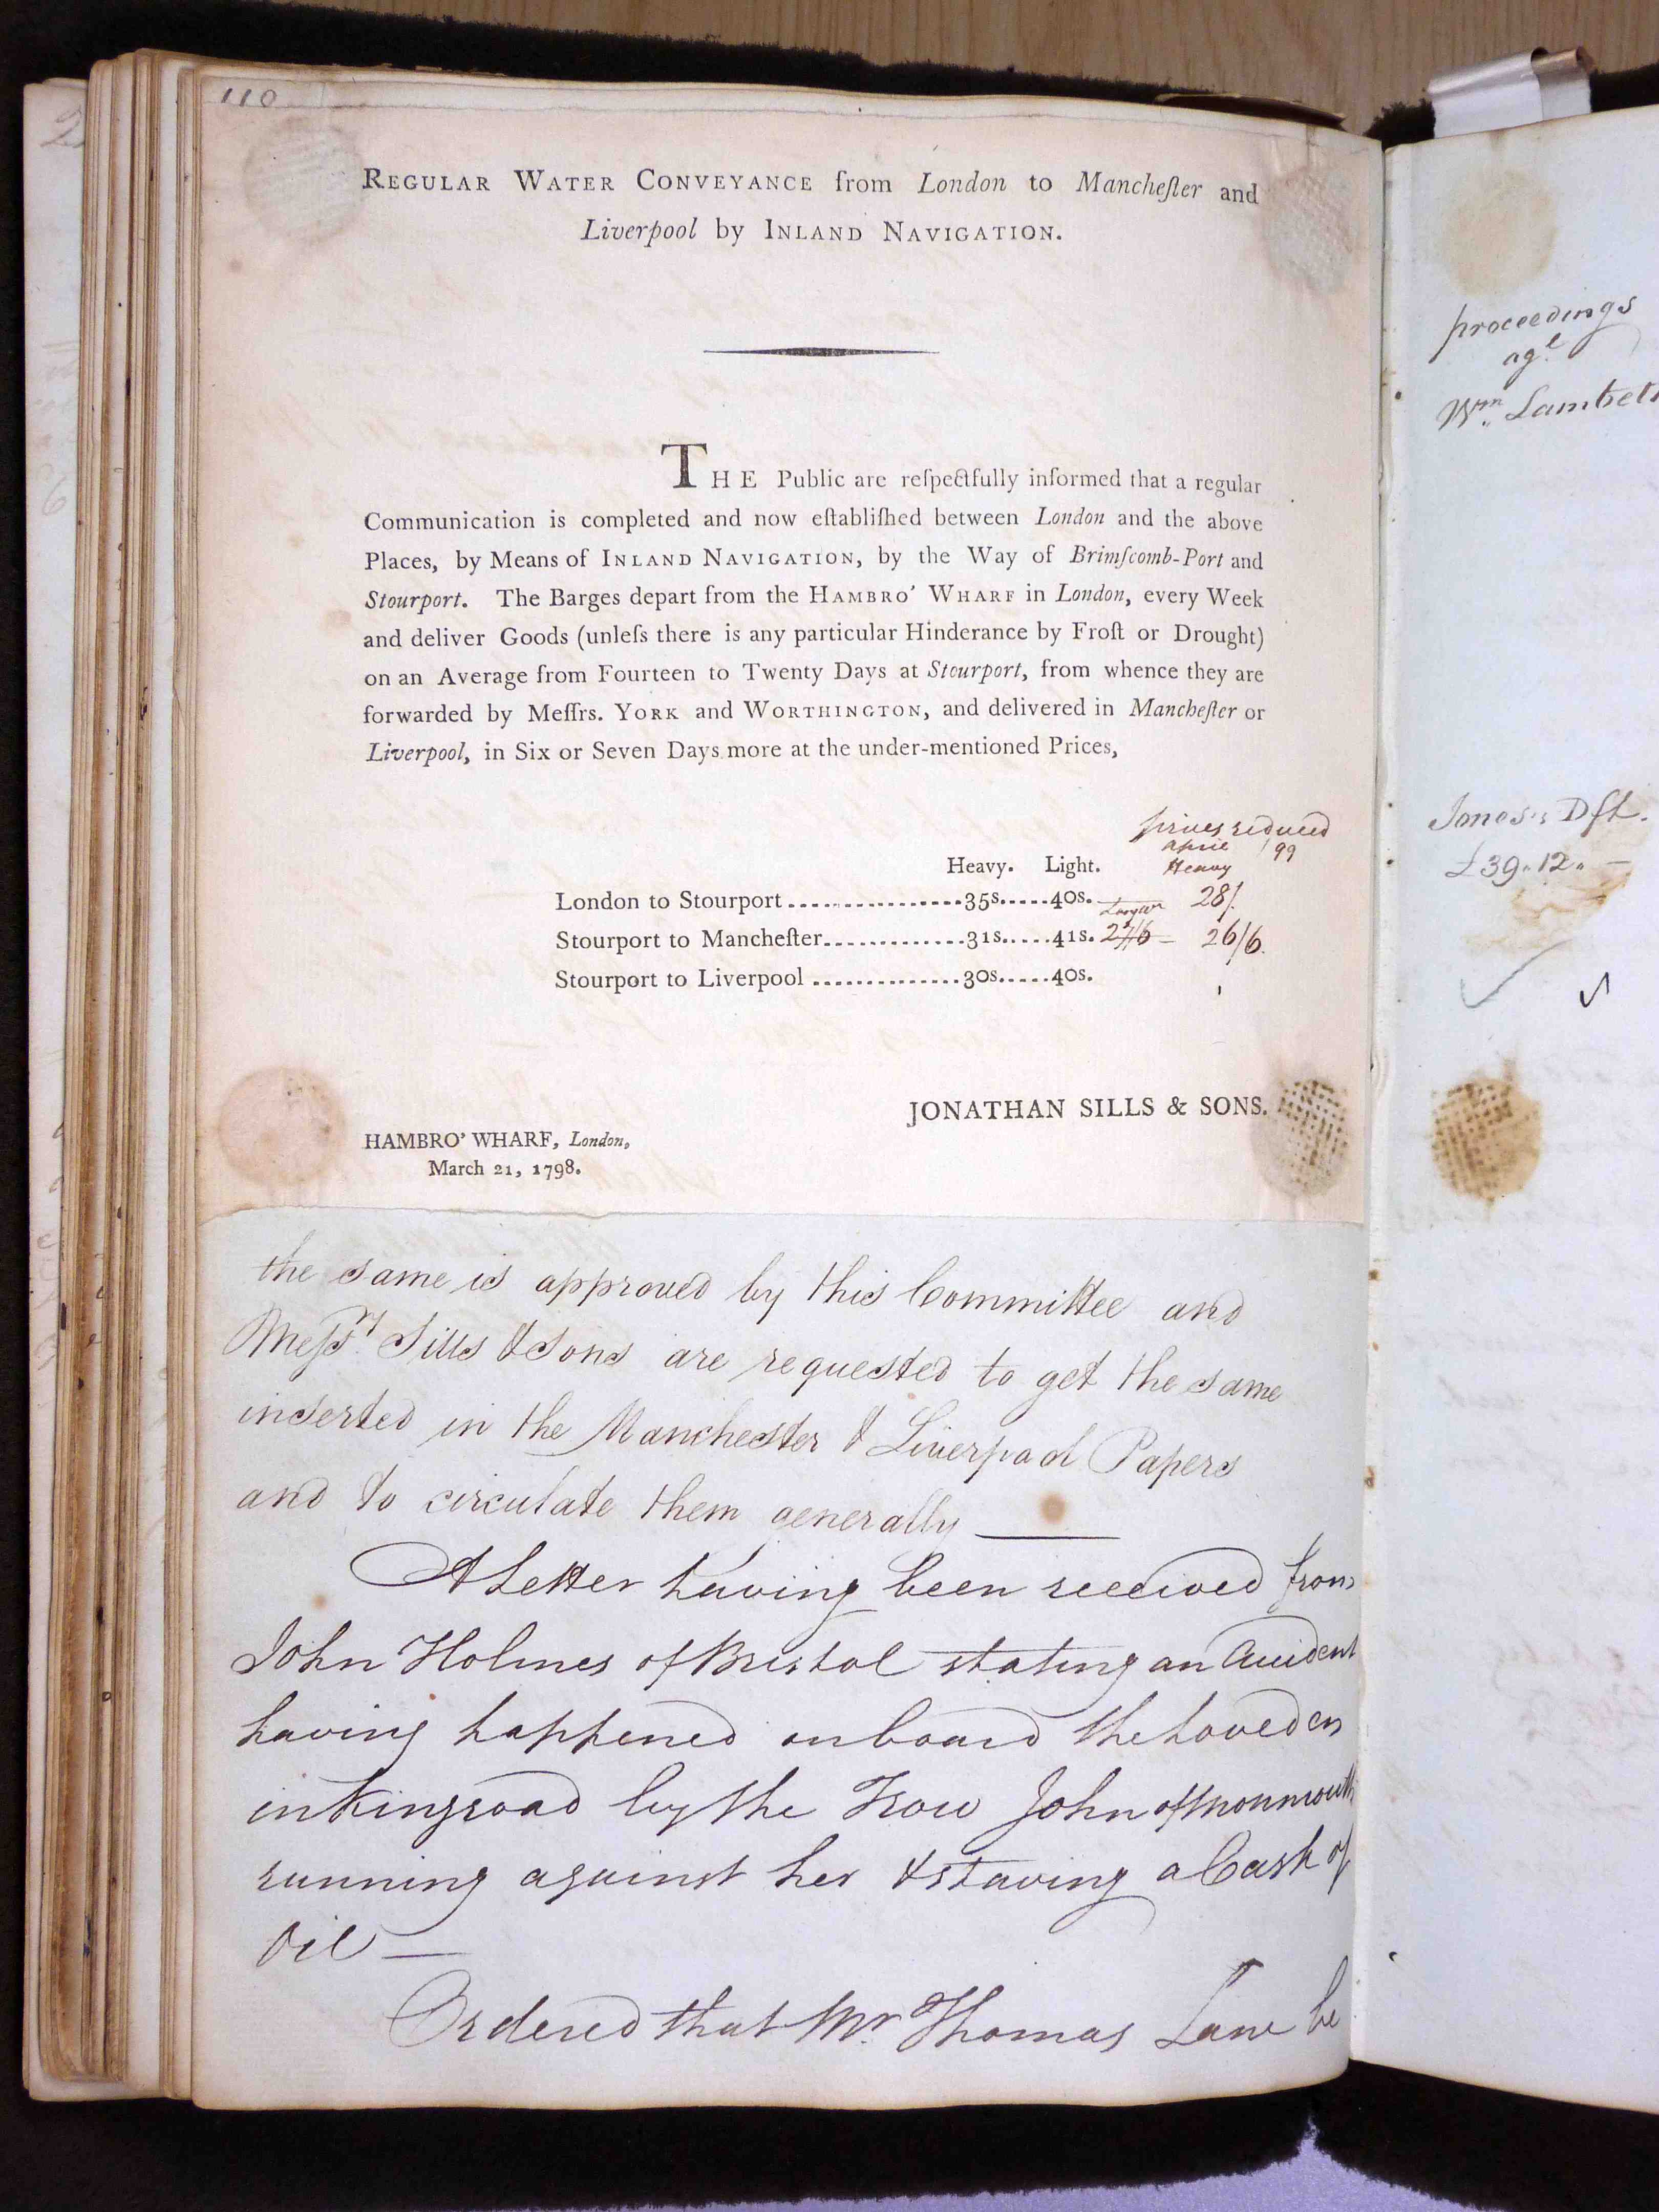 110
REGULAR WATER CONVEYANCE from London to Mancheſter and
Liverpool by INLAND NAVIGATION.
THE Public are reſpectfully informed that a regular
Communication is completed and now eſtabliſhed between London and the above
Places, by Means of INLAND NAVIGATION, by the Way of Brimſcomb-Port and
Stourport. The Barges depart from the HAMBRO' WHARF in London, every Week
and deliver Goods (unleſs there is any particular Hinderance by Froſt or Drought)
on an Average from Fourteen to Twenty Days at Stourport, from whence they are
forwarded by Meſſrs. YORK and WORTHINGTON, and delivered in Mancheſter or
Liverpool, in Six or Seven Days more at the under-mentioned Prices,
prices reduced
April /99
Heavy. Light. Heavy
London to Stourport 35s. 40s. 28/.
Stourport to Mancheſter 31s. 41s. 27/6 26/6.
Stourport to Liverpool 30s. 40s.
JONATHAN SILLS & SONS.
HAMBRO' WHARF, London,
March 21, 1798.
the same is approved by this Committee and
Meſsrs. Sills & Sons are requested to get the same
inserted in the Manchester & Liverpool Papers
and to circulate them generally
A Letter having been received from
John Holmes of Bristol stating an Accident
having happened on board the Loveden
in Kingroad by the Trow John of Monmouth
running against her & staving a Cask of
Oil
Ordered that Mr. Thomas Lane be
proceedings
agt.
Wm.
Jones's Dft.
£39.12.